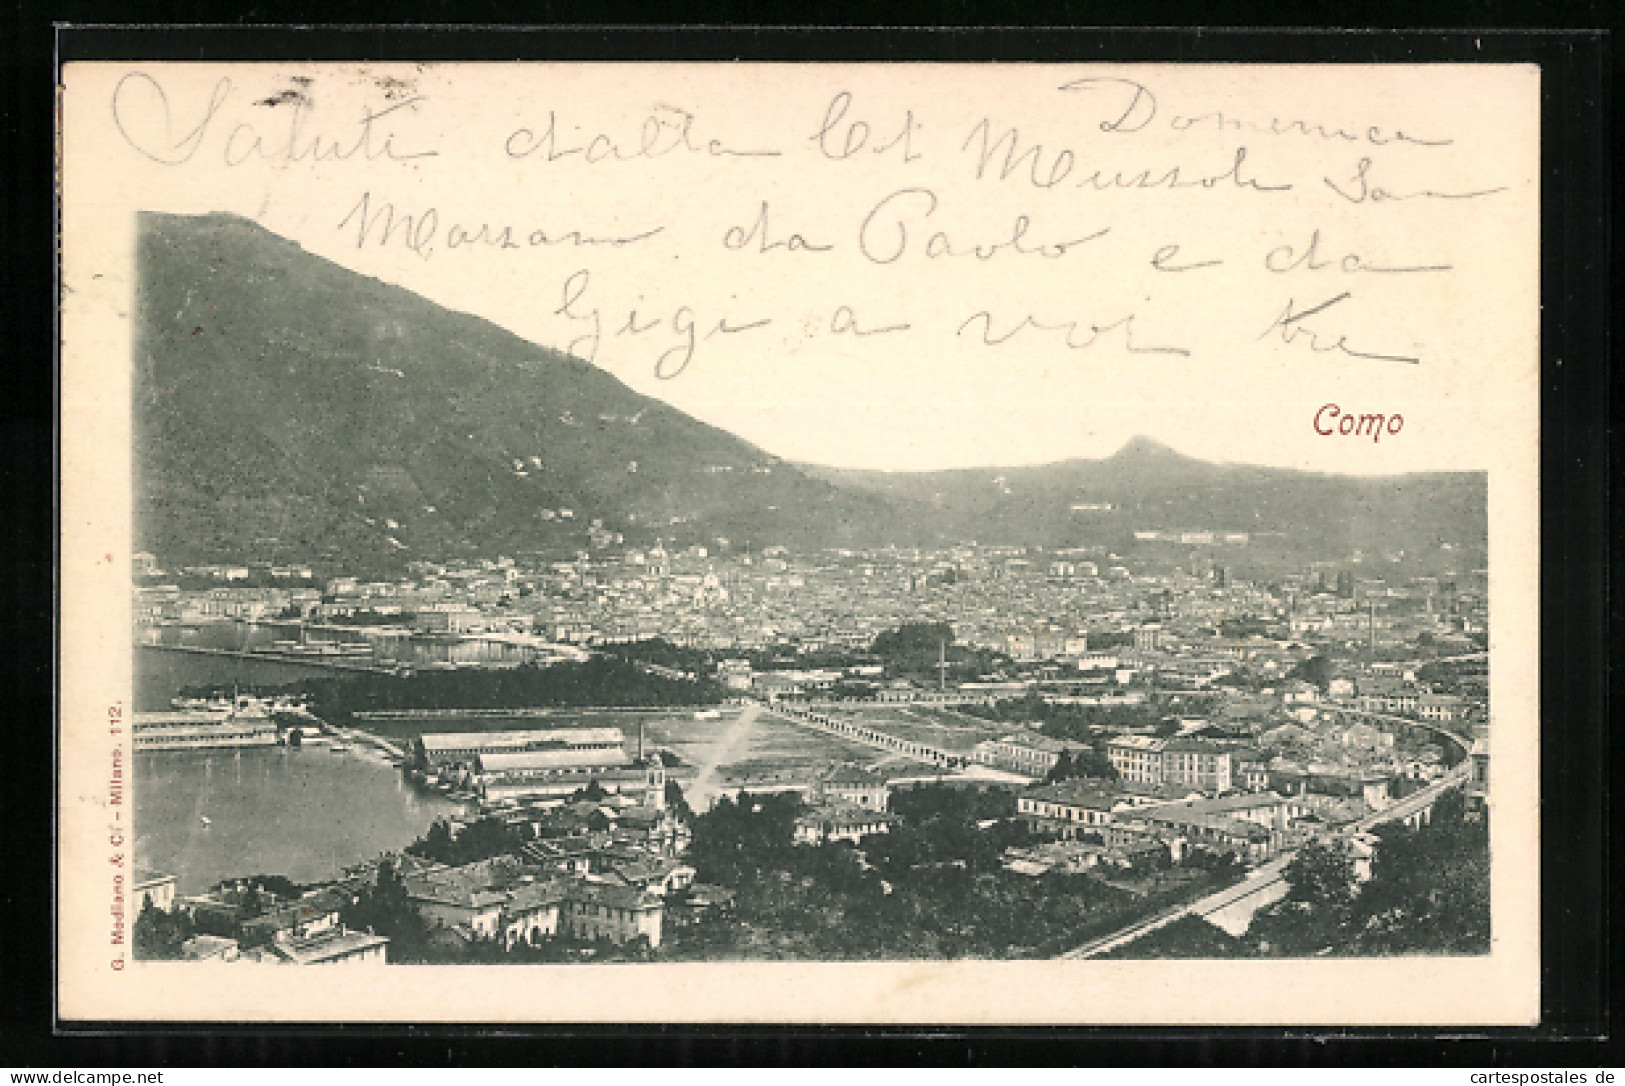 Saluti dalla Domenica
Mussoli San
Marzano da Paolo e da
Gigi a voi tre
Como
G. Modiano & Ci - Milano. 112.
myipo
cartespostales de